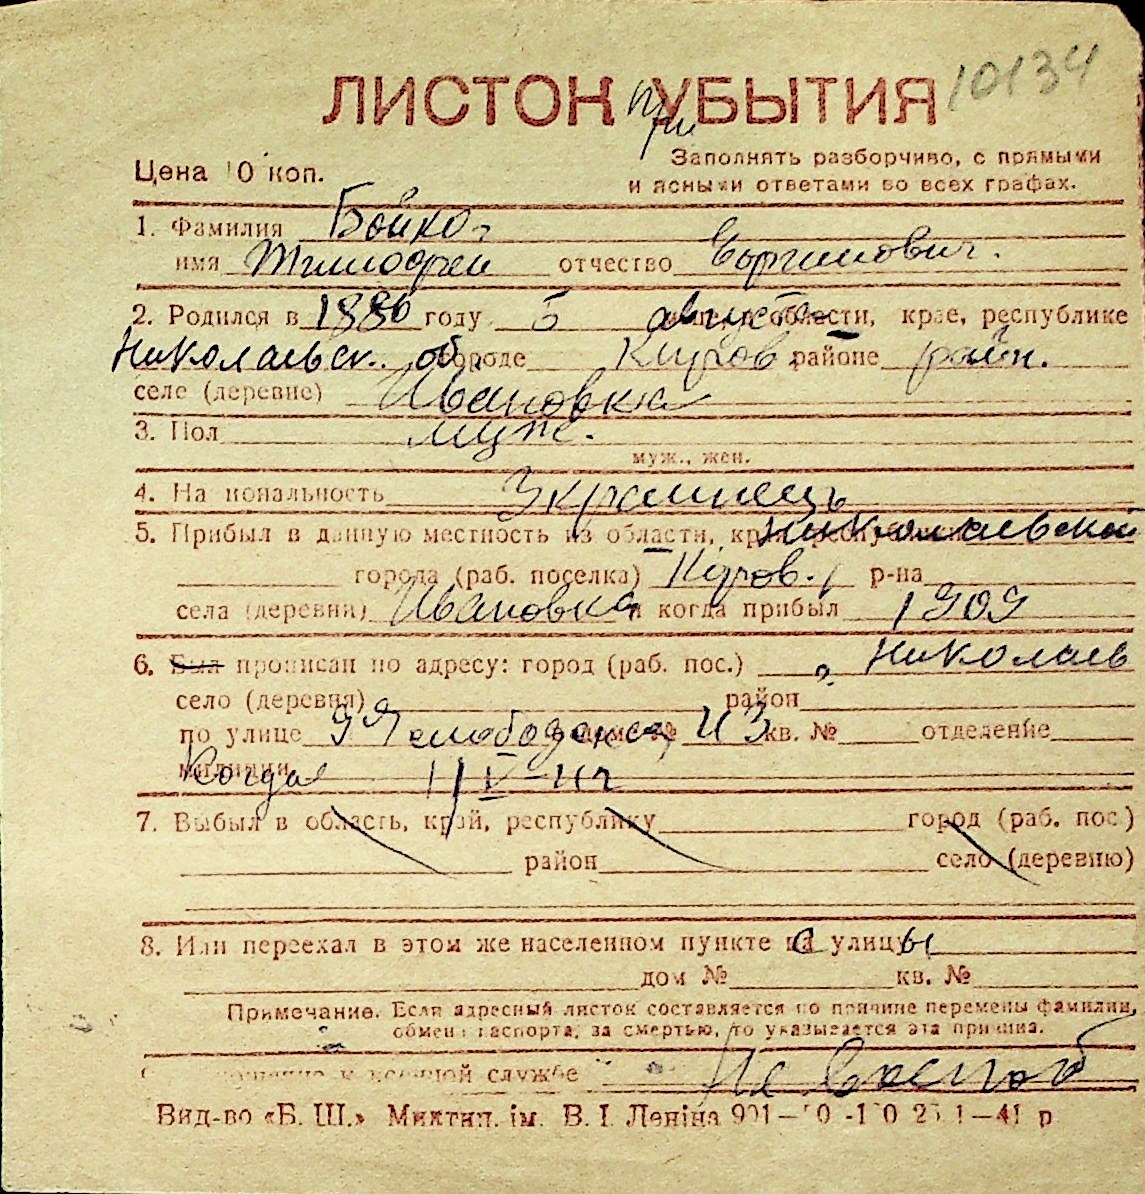 ЛИСТОК при УБЫТИЯ 10134
Цена 10 коп. Заполнять разборчиво, с прямыми
и ясными ответами во всех графах.
1. Фамилия Бойко
имя Тимофей отчество
2. Родился в 1886 году 5 августа области, крае, республике
Николаевск. об. городе Киров районе район.
селе (деревне) Ивановка
3. Пол муж.
муж., жен.
4. Национальность Украинець
5. Прибыл в данную местность из области, края, республики Николаевской
города (раб. поселка) Киров. р-на
села (деревни) Ивановка и когда прибыл 1909
6. Был прописан по адресу: город (раб. пос.) г. Николаев
село (деревня) район
по улице 9 Я Слободская дом № 43 кв. № отделение
милиции Когда
7. Выбыл в область, край, республику город (раб. пос)
район село (деревню)
8. Или переехал в этом же населенном пункте на с улицы
дом № кв. №
Примечание. Если адресный листок составляется по причине перемены фамилии,
обмена паспорта, за смертью, то указывается эта причина.
военной службе Не военнооб
Вид-во «Б. Ш.» Миктип. ім. В. І. Леніна